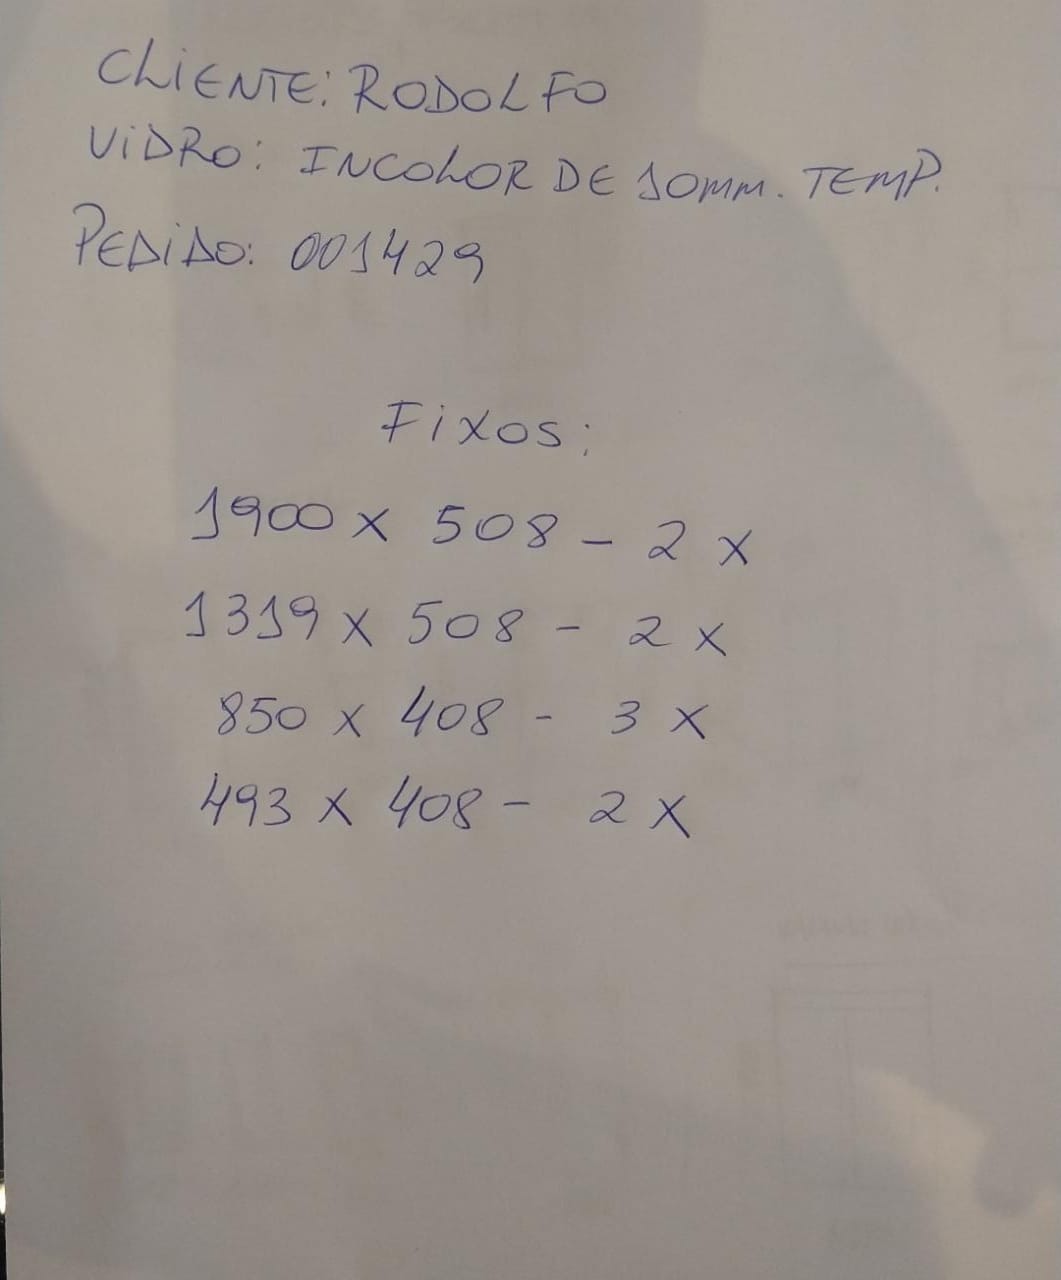 CLIENTE: RODOLFO
VIDRO: INCOLOR DE 10MM. TEMP.
PEDIDO: 001429
FIXOS:
1900 x 508 - 2 x
1319 x 508 - 2 x
850 x 408 - 3 x
493 x 408 - 2 x